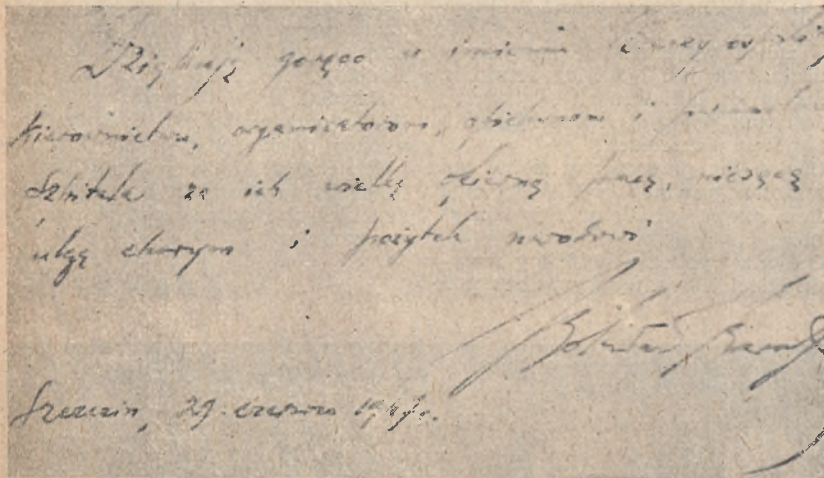 Dziękuję gorąco w imieniu Rzeczypospolitej
Kierownictwu, organizatorom, opiekunom i
Szpitala za ich wielką ofiarną pracę, niosącą
ulgę chorym i pożytek narodowi
Bolesław Bierut
Szczecin, 29 czerwca 1947 r.